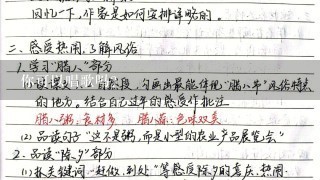 回忆一下，作家是如何安排详略的。
二、感度热闹，了解风俗
1. 学习“腊八”部分
段，勾画出最能体现“腊八节”风俗特点
的地方。结合自己过年的感度作批注
腊八粥，食材多 腊八蒜：色味双美
(2) 品读句子“这不是粥，而是小型的农业产品展览会”
2. 品读“除夕”部分
抓关键词“赶做，到处”等感度除夕的喜庆、热闹
你可以唱歌吗